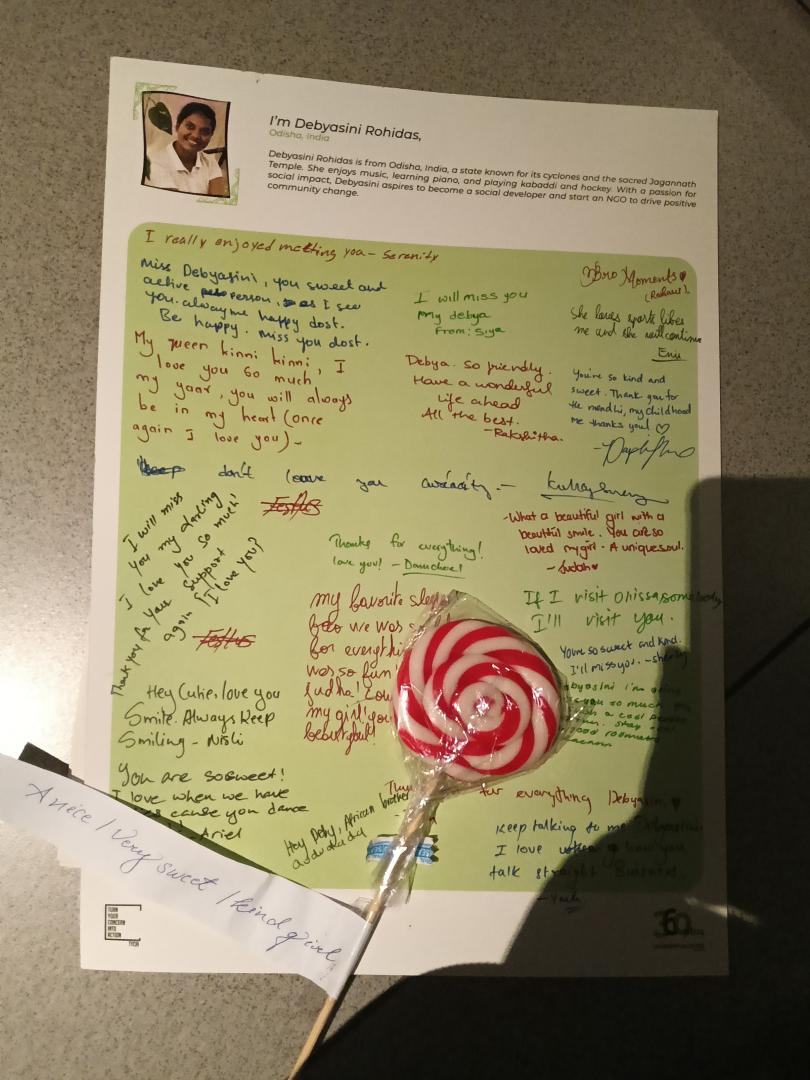 I'm Debyasini Rohidas,
Odisha, India
Debyasini Rohidas is from Odisha, India, a state known for its cyclones and the sacred Jagannath
Temple. She enjoys music, learning piano, and playing kabaddi and hockey. With a passion for
social impact, Debyasini aspires to become a social developer and start an NGO to drive positive
community change.
I really enjoyed meeting you - Serenity
Miss Debyasini, you sweet and
active person, as I see
you. always me happy dost.
Be happy. miss you dost.
I will miss you
my debya
From: Siya
Bro Moments
She loves sports likes
me and she will continue
Emu
My queen kinni kinni, I
love you so much,
my yaar, you will always
be in my heart (once
again I love you) -
Debya. So friendly.
Have a wonderful
life ahead
All the best.
- Rakshitha.
You're so kind and
sweet. Thank you for
the mendhi, my childhood
me thanks you!
don't leave you curiosity. -
Festus
I will miss
you my darling
I love you so much!
Thank you for your support
again I love you?
- What a beautiful girl with a
beautiful smile. You are so
loved my girl. A unique soul.
- Judah
Thanks for everything!
love you! -
Festus
my favorite
we was
for everything
was so fun!
my girl! you
If I visit
I'll visit you.
You're so sweet and kind.
I'll miss you. -
Hey Cutie, love you
Smile. Always Keep
Smiling - Nisli
so much
a cool
stay
You are so sweet!
I love when we have
cause you dance
- Ariel
for everything Debyasini
Hey Deby, African brother
Keep talking to me Debyasini
I love how you
talk straight Business.
A nice / Very sweet / kind girl
TURN
YOUR
CONCERN
INTO
ACTION
TYCIA
360